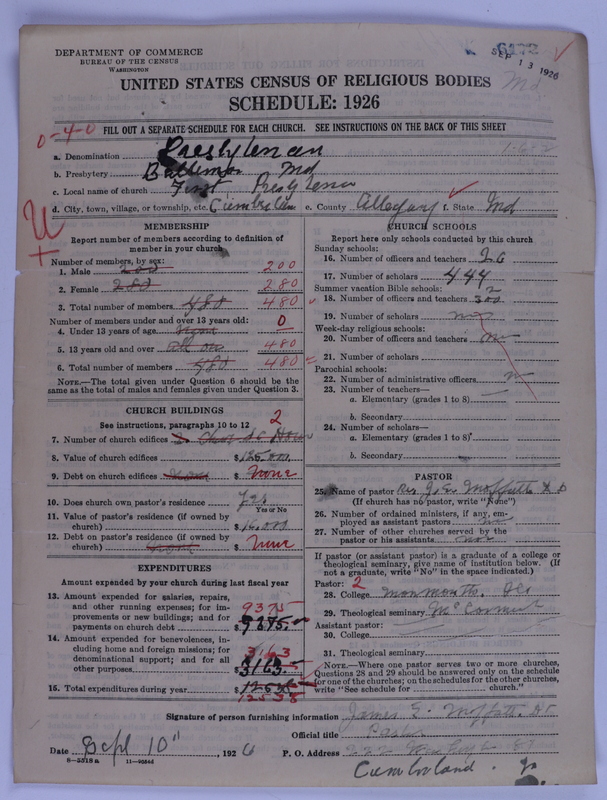 DEPARTMENT OF COMMERCE
BUREAU OF THE CENSUS
WASHINGTON
6472
SEP 13 1926
Md
UNITED STATES CENSUS OF RELIGIOUS BODIES
SCHEDULE: 1926
0-4-0
FILL OUT A SEPARATE SCHEDULE FOR EACH CHURCH. SEE INSTRUCTIONS ON THE BACK OF THIS SHEET
a. Denomination Presbyterian
b. Presbytery Baltimore Md
c. Local name of church First Presbyterian
d. City, town, village, or township, etc. Cumberland e. County Allegany f. State Md
MEMBERSHIP
Report number of members according to definition of member in your church
Number of members, by sex:
1. Male 200 200
2. Female 280 280
3. Total number of members 480 480
Number of members under and over 13 years old:
4. Under 13 years of age 0
5. 13 years old and over 480
6. Total number of members 480 480
NOTE.—The total given under Question 6 should be the same as the total of males and females given under Question 3.
CHURCH BUILDINGS
See instructions, paragraphs 10 to 12
7. Number of church edifices 2
8. Value of church edifices $125,000
9. Debt on church edifices $ None
10. Does church own pastor's residence Yes
Yes or No
11. Value of pastor's residence (if owned by church) $
12. Debt on pastor's residence (if owned by church) $ None
EXPENDITURES
Amount expended by your church during last fiscal year
13. Amount expended for salaries, repairs, and other running expenses; for improvements or new buildings; and for payments on church debt $ 9375
14. Amount expended for benevolences, including home and foreign missions; for denominational support; and for all other purposes $ 3163
15. Total expenditures during year $ 12538
CHURCH SCHOOLS
Report here only schools conducted by this church
Sunday schools:
16. Number of officers and teachers 26
17. Number of scholars 444
Summer vacation Bible schools:
18. Number of officers and teachers
19. Number of scholars
Week-day religious schools:
20. Number of officers and teachers
21. Number of scholars
Parochial schools:
22. Number of administrative officers
23. Number of teachers—
a. Elementary (grades 1 to 8)
b. Secondary
24. Number of scholars—
a. Elementary (grades 1 to 8)
b. Secondary
PASTOR
25. Name of pastor Rev J. E. Moffatt D D
(If church has no pastor, write "None")
26. Number of ordained ministers, if any, employed as assistant pastors
27. Number of other churches served by the pastor or his assistants
If pastor (or assistant pastor) is a graduate of a college or theological seminary, give name of institution below. (If not a graduate, write "No" in the space indicated.)
Pastor: 2
28. College Monmouth. Ills
29. Theological seminary McCormick
Assistant pastor:
30. College
31. Theological seminary
NOTE.—Where one pastor serves two or more churches, Questions 28 and 29 should be answered only on the schedule for one of the churches; on the schedules for the other churches, write "See schedule for church."
Signature of person furnishing information James E. Moffatt. D.D.
Official title Pastor
Date Sept 10" 1926 P. O. Address
Cumberland.
8—5518a 11—9544